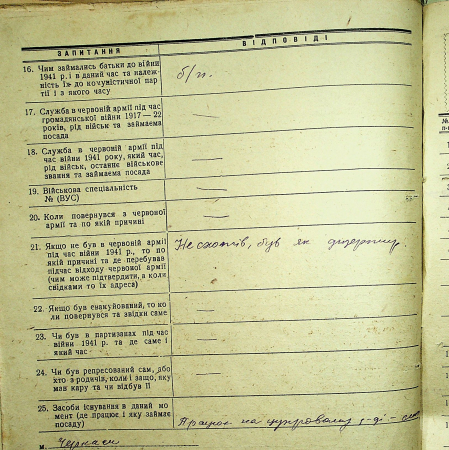 ЗАПИТАННЯ
ВІДПОВІДІ
16. Чим займались батьки до війни
1941 р. і в даний час та належ-
ність їх до комуністичної пар-
тії і з якого часу
б/п.
17. Служба в червоній армії під час
громадянської війни 1917—22
років, рід військ та займаема
посада
—
18. Служба в червоній армії під
час війни 1941 року, який час,
рід військ, останнє військове
звання та займаема посада
—
19. Військова спеціальність
№ (ВУС)
—
20. Коли повернувся з червоної
армії та по якій причині
—
21. Якщо не був в червоній армії
під час війни 1941 р., то по
якій причині та де перебував
підчас відходу червоної армії
(чим може підтвердити, а коли
свідками то їх адреса)
Не схотів, був як дизертир
22. Якщо був евакуйований, то ко
ли повернувся та звідки саме
—
23. Чи був в партизанах під час
війни 1941 р. та де саме і
який час
—
24. Чи був репресований сам, або
хто з родичів, коли і защо, яку
мав кару та чи відбув її
—
25. Засоби існування в даний мо
мент (де працює і яку займає
посаду)
Працює на цукровому
м. Черкаси